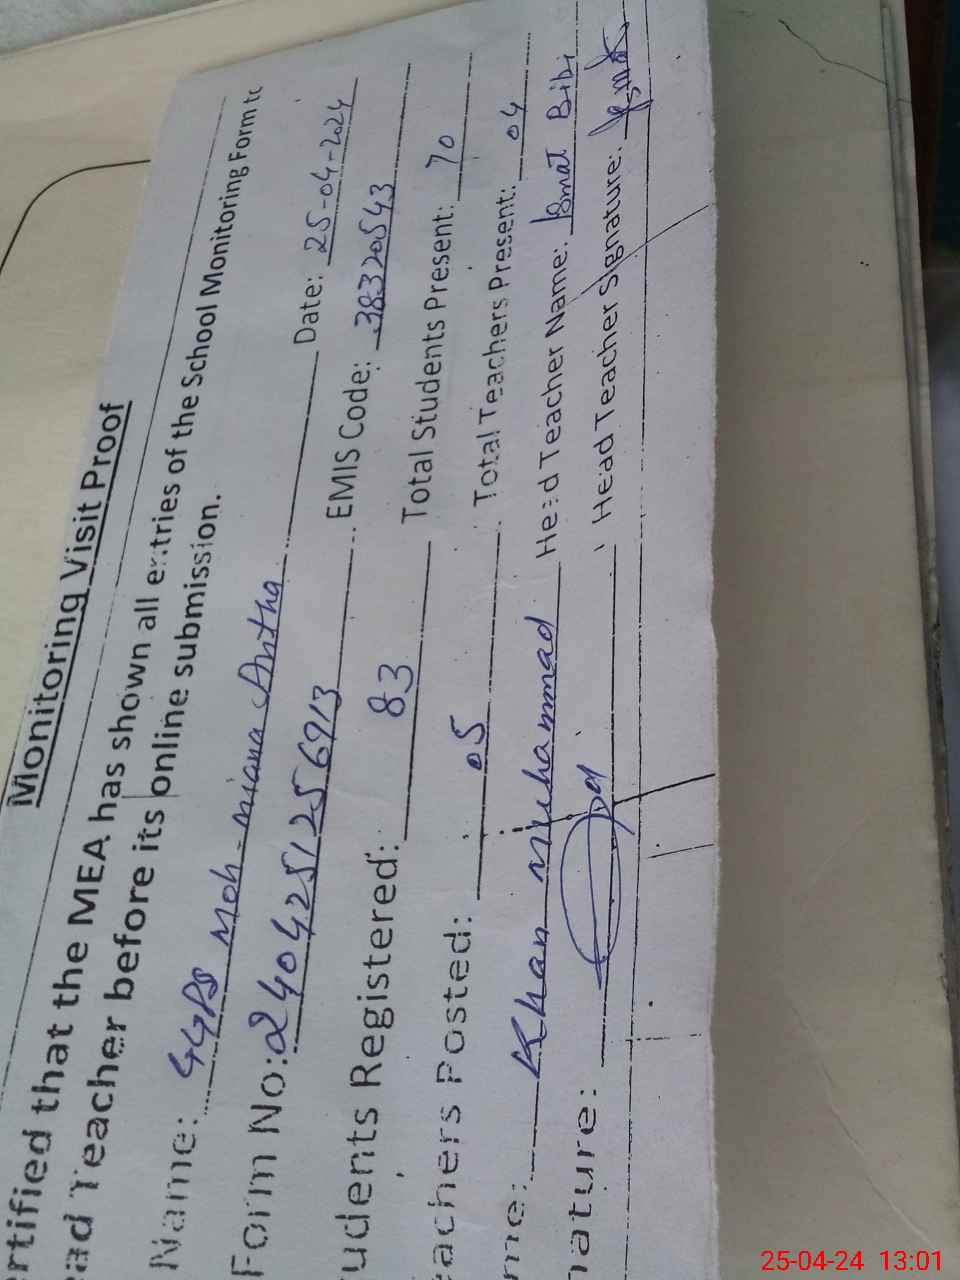 Monitoring Visit Proof
ertified that the MEA has shown all entries of the School Monitoring Form to
ead Teacher before its online submission.
Name: GGPS Moh-miana Antha Date: 25-04-2024
Form No: 2404251256913 EMIS Code: 38320543
udents Registered: 83 Total Students Present: 70
eachers Posted: 05 Total Teachers Present: 04
me: Khan Muhammad Head Teacher Name: Ismat Bibi
nature: Head Teacher Signature:
25-04-24 13:01